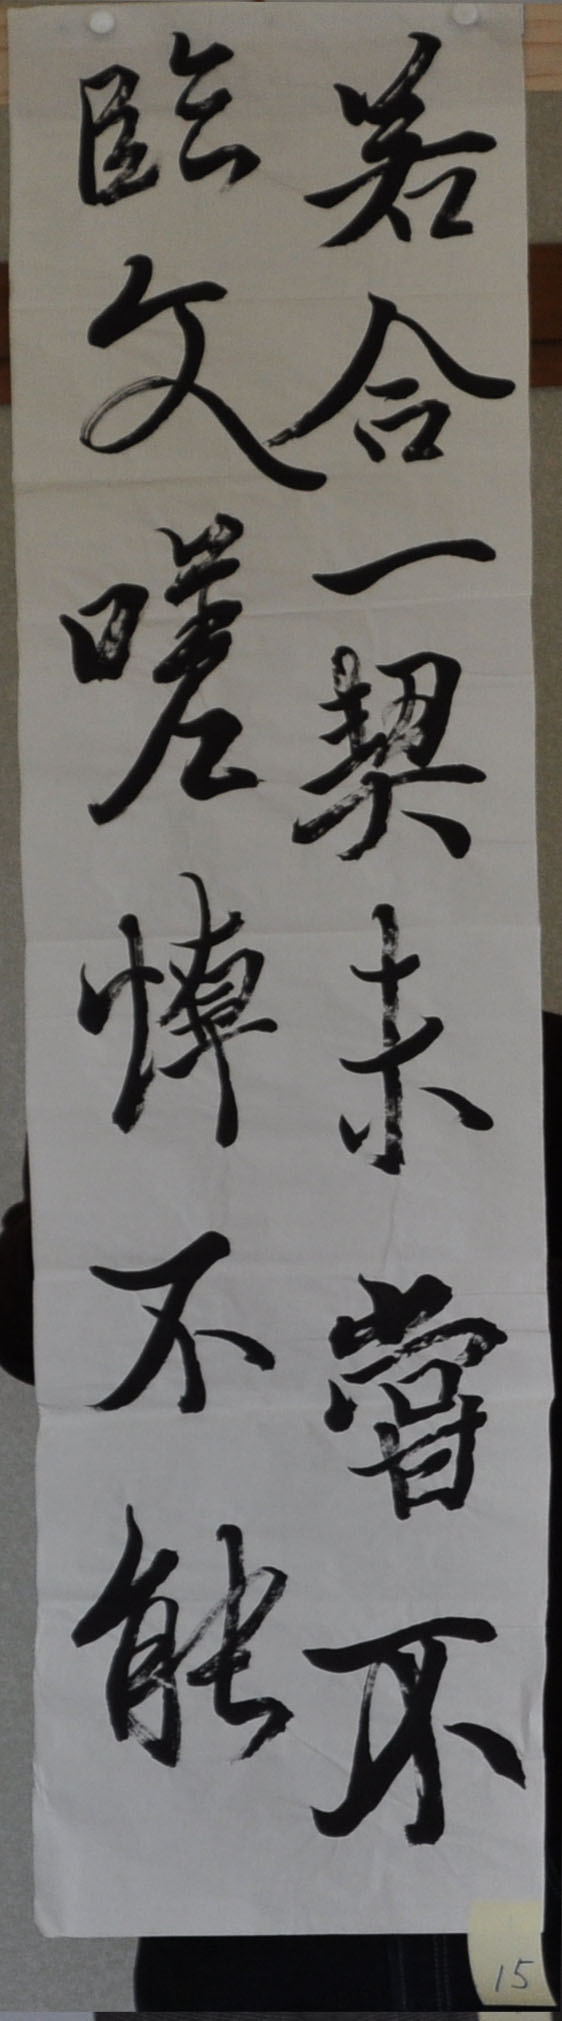 若合一契未嘗不
臨文嗟悼不能
15